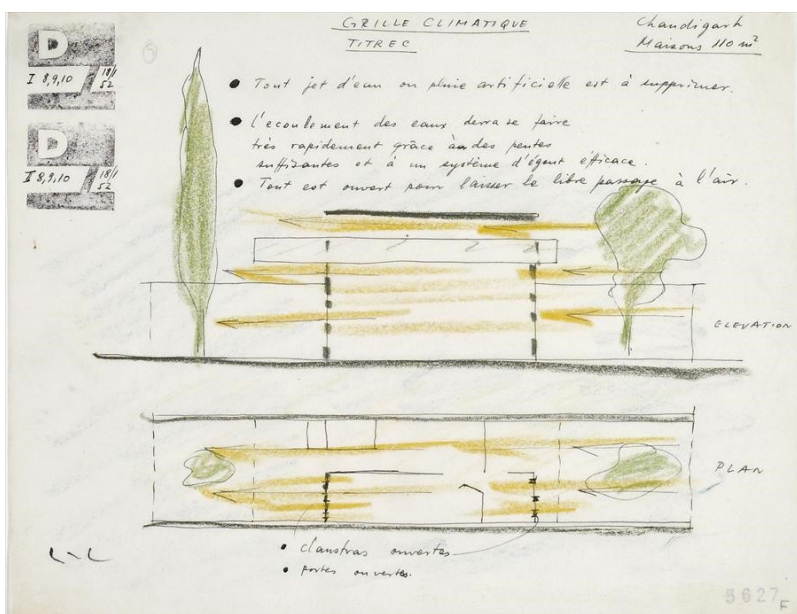 GRILLE CLIMATIQUE
TITRE C
Chandigarh
Maisons 110 m²
D
I 8,9,10 18/1
52
D
II 8,9,10 18/1
52
• Tout jet d'eau ou pluie artificielle est à supprimer.
• L'ecoulement des eaux devra se faire
très rapidement grâce à des pentes
suffisantes et à un système d'égout éfficace.
• Tout est ouvert pour laisser le libre passage à l'air.
ELEVATION
PLAN
• claustras ouvertes
• portes ouvertes.
5627
F